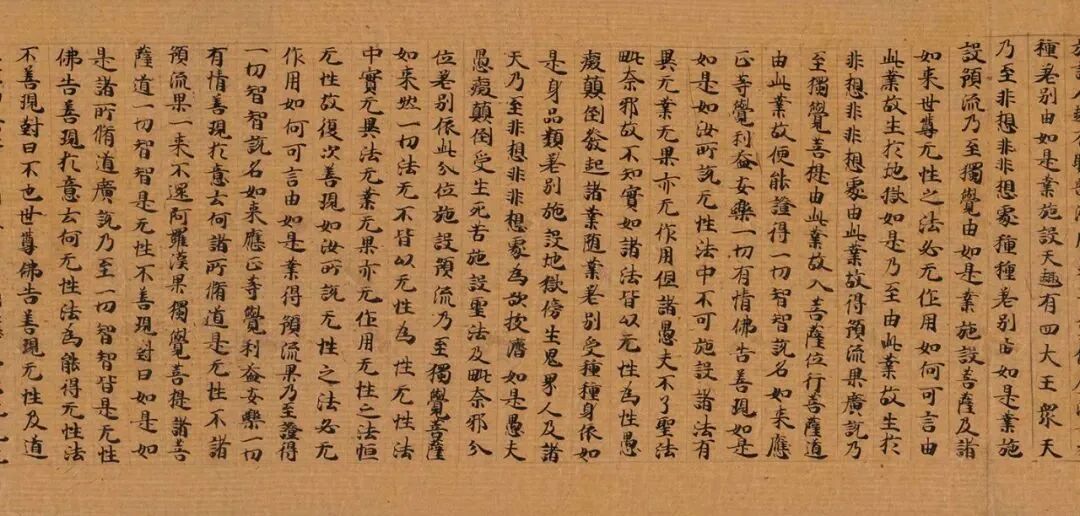 種差別由如是業施設天趣有四大王眾天
乃至非想非非想處種種差別由如是業施
設預流乃至獨覺由如是業施設菩薩及諸
如來世尊无性之法必无作用如何可言由
此業故生於地獄如是乃至由此業故生於
非想非非想處由此業故得預流果廣說乃
至獨覺菩提由此業故入菩薩位行菩薩道
由此業故便能證得一切智智說名如來應
正等覺利益安樂一切有情佛告善現如是
如是如汝所說无性法中不可施設諸法有
異无業无果亦无作用但諸愚夫不了聖法
毗奈耶故不知實如諸法皆以无性為性愚
癡顛倒發起諸業隨業差別受種種身依如
是身品類差別施設地獄傍生鬼界人及諸
天乃至非想非非想處為欲拔濟如是愚夫
愚癡顛倒受生死苦施設聖法及毗奈耶分
位差別依此分位施設預流乃至獨覺菩薩
如來然一切法无不皆以无性為性无性法
中實无異法无業无果亦无作用无性之法恒
无性故復次善現如汝所說无性之法必无
作用如何可言由如是業得預流果乃至證得
一切智智說名如來應正等覺利益安樂一切
有情善現於意云何諸所脩道是无性不諸
預流果一來不還阿羅漢果獨覺菩提諸菩
薩道一切智智是无性不善現對曰如是如
是諸所脩道廣說乃至一切智智皆是无性
佛告善現於意云何无性法為能得无性法
不善現對曰不也世尊佛告善現无性及道